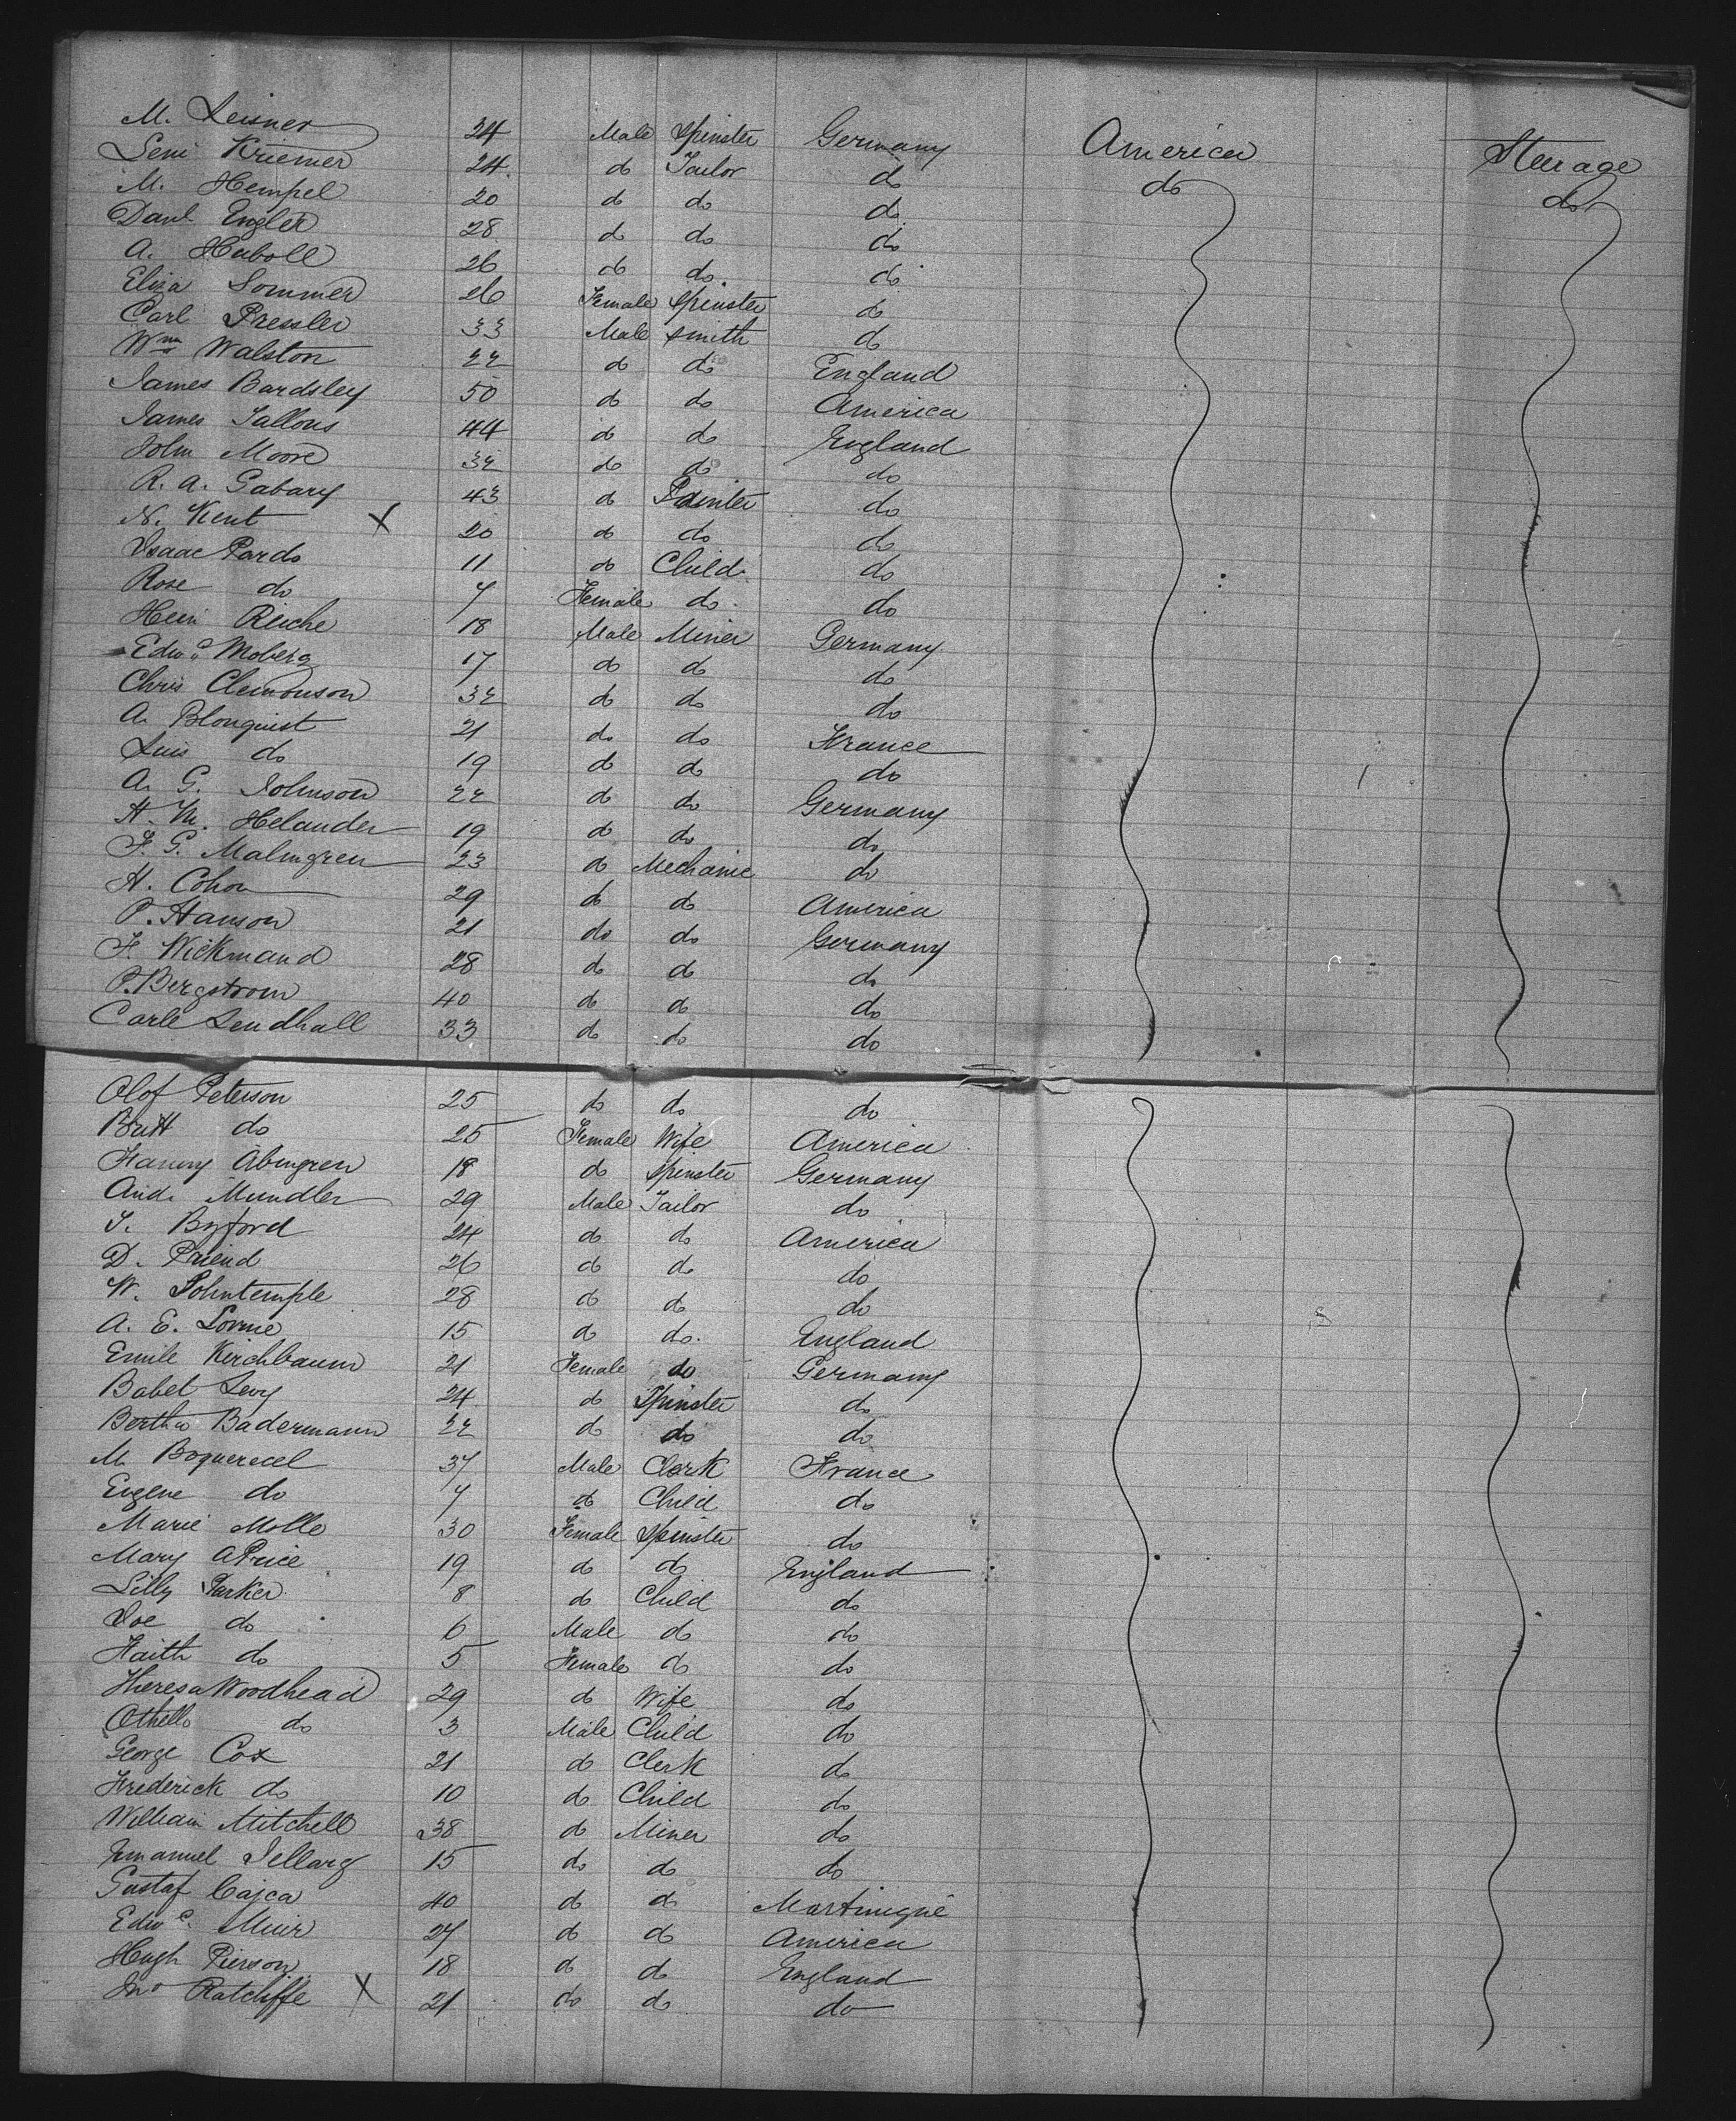 M. Leisner 24 Male Spinster Germany America Steerage
Leni Kriemer 24 do Tailor do do do
M. Hempel 20 do do do
Danl Engler 28 do do do
A. Huboll 26 do do do
Eliza Sommer 26 Female Spinster do
Carl Pressler 33 Male Smith do
Wm Walston 22 do do England
James Bardsley 50 do do America
James Tallous 44 do do England
John Moore 32 do do do
R. A. Gabary 43 do Painter do
N. Kent X 20 do do do
Isaac Pardo 11 do Child do
Rose do 7 Female do do
Hein Reiche 18 Male Miner Germany
Edwd Moberg 17 do do do
Chris Clemonson 32 do do do
A. Blonquist 21 do do France
Luis do 19 do do do
A. G. Johnson 22 do do Germany
A. M. Helander 19 do do do
F. G. Malmgren 23 do Mechanic do
H. Cohon 29 do do America
P. Hanson 21 do do Germany
F. Wickmand 28 do do do
P. Bergstrom 40 do do do
Carle Lendhall 33 do do do
Olof Peterson 25 do do do
Britt do 25 Female Wife America
Fanny Abmgren 18 do Spinster Germany
And. Mundler 29 Male Tailor do
T. Byford 24 do do America
D. Friend 26 do do do
W. Johntemple 28 do do do
A. E. Lorme 15 do do England
Emile Kirchbaum 21 Female do Germany
Babet Levy 24 do Spinster do
Bertha Badermann 22 do do do
M. Boquerecel 37 Male Clerk France
Eugene do 7 do Child do
Marie Molle 30 Female Spinster do
Mary A Price 19 do do England
Lilly Parker 8 do Child do
Joe do 6 Male do do
Faith do 5 Female do do
Theresa Woodhead 29 do Wife do
Othello do 3 Male Child do
George Cox 21 do Clerk do
Frederick do 10 do Child do
William Mitchell 38 do Miner do
Emanuel Jellarg 15 do do do
Gustaf Cajca 40 do do Martinique
Edwd Muir 27 do do America
Hugh Pierson 18 do do England
Jno Ratcliffe X 21 do do do